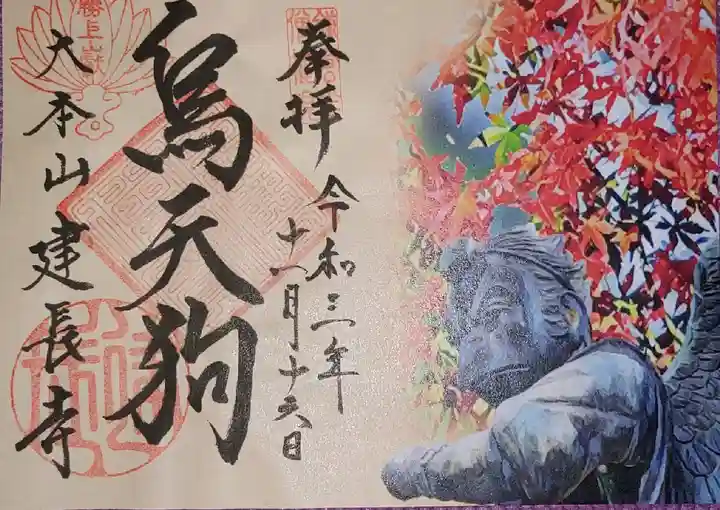 奉拝
令和三年
十一月十六日
烏天狗
大本山建長寺
勝上嶽